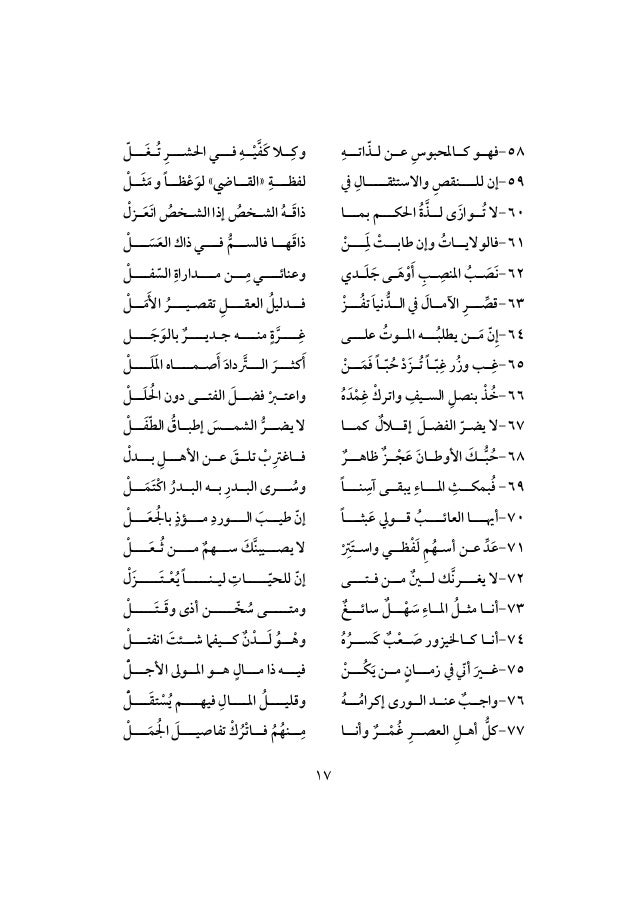 ٥٨-فهو كالمحبوسِ عن لذّاتهِ وكِلا كَفَّيْهِ في الحشرِ تُغَلّ
٥٩-إن للنقصِ والاستثقالِ في لفظةِ «القاضي» لوَعْظاً ومَثَلْ
٦٠-لا تُوازَى لذَّةُ الحكم بما ذاقَهُ الشخصُ إذا الشخصُ انَعَزلْ
٦١-فالولاياتُ وإن طابتْ لِمَنْ ذاقَها فالسمُّ في ذاك العَسَلْ
٦٢-نَصَبُ المنصِبِ أَوْهَى جَلَدي وعنائي مِن مداراةِ السّفلْ
٦٣-قصِّرِ الآمالَ في الدُّنياَ تفُزْ فدليلُ العقلِ تقصيرُ الأَمَلْ
٦٤-إِنّ مَن يطلبُه الموتُ على غِرَّةٍ منه جديرٌ بالوَجَل
٦٥-غِب وزُر غِبّاً تُزَدْ حُبّاً فَمَنْ أكثرَ التَّردادَ أَصماه المَلَلْ
٦٦-خُذْ بنصلِ السيفِ واتركْ غِمْدَهُ واعتبرْ فضلَ الفتى دون الحُلَلْ
٦٧-لا يضرّ الفضلَ إقلالٌ كما لا يضرُّ الشمسَ إطباقُ الطّفَلْ
٦٨-حُبُّكَ الأوطانَ عَجْزٌ ظاهرٌ فاغتربْ تلقَ عن الأهلِ بدلْ
٦٩-فُبمكثِ الماءِ يبقى آسِناً وسُرى البدرِ به البدرُ اكْتَمَلْ
٧٠-أيها العائبُ قولي عَبثاً إنّ طيبَ الوردِ مؤذٍ بالجُعَلْ
٧١-عَدِّ عن أسهُمِ لَفْظي واستَتِرْ لا يصيبنَّكَ سهمٌ من ثُعَلْ
٧٢-لا يغرنَّك لينٌ من فتى إنّ للحيّاتِ ليناً يُعْتَزَلْ
٧٣-أنا مثلُ الماءِ سَهْلٌ سائغٌ ومتى سُخّن أذى وقَتَلْ
٧٤-أنا كالخيزور صَعْبٌ كَسرُهُ وهْوُ لَدْنٌ كيفما شئتَ انفتلْ
٧٥-غيرَ أنّي في زمانٍ من يَكُنْ فيه ذا مالٍ هو المولى الأجلّ
٧٦-واجبٌ عند الورى إكرامُهُ وقليلُ المالِ فيهم يُسْتقَلّ
٧٧-كلُّ أهلِ العصرِ غُمْرٌ وأنا مِنهُمُ فاتْرُكْ تفاصيلَ الجُمَلْ
١٧